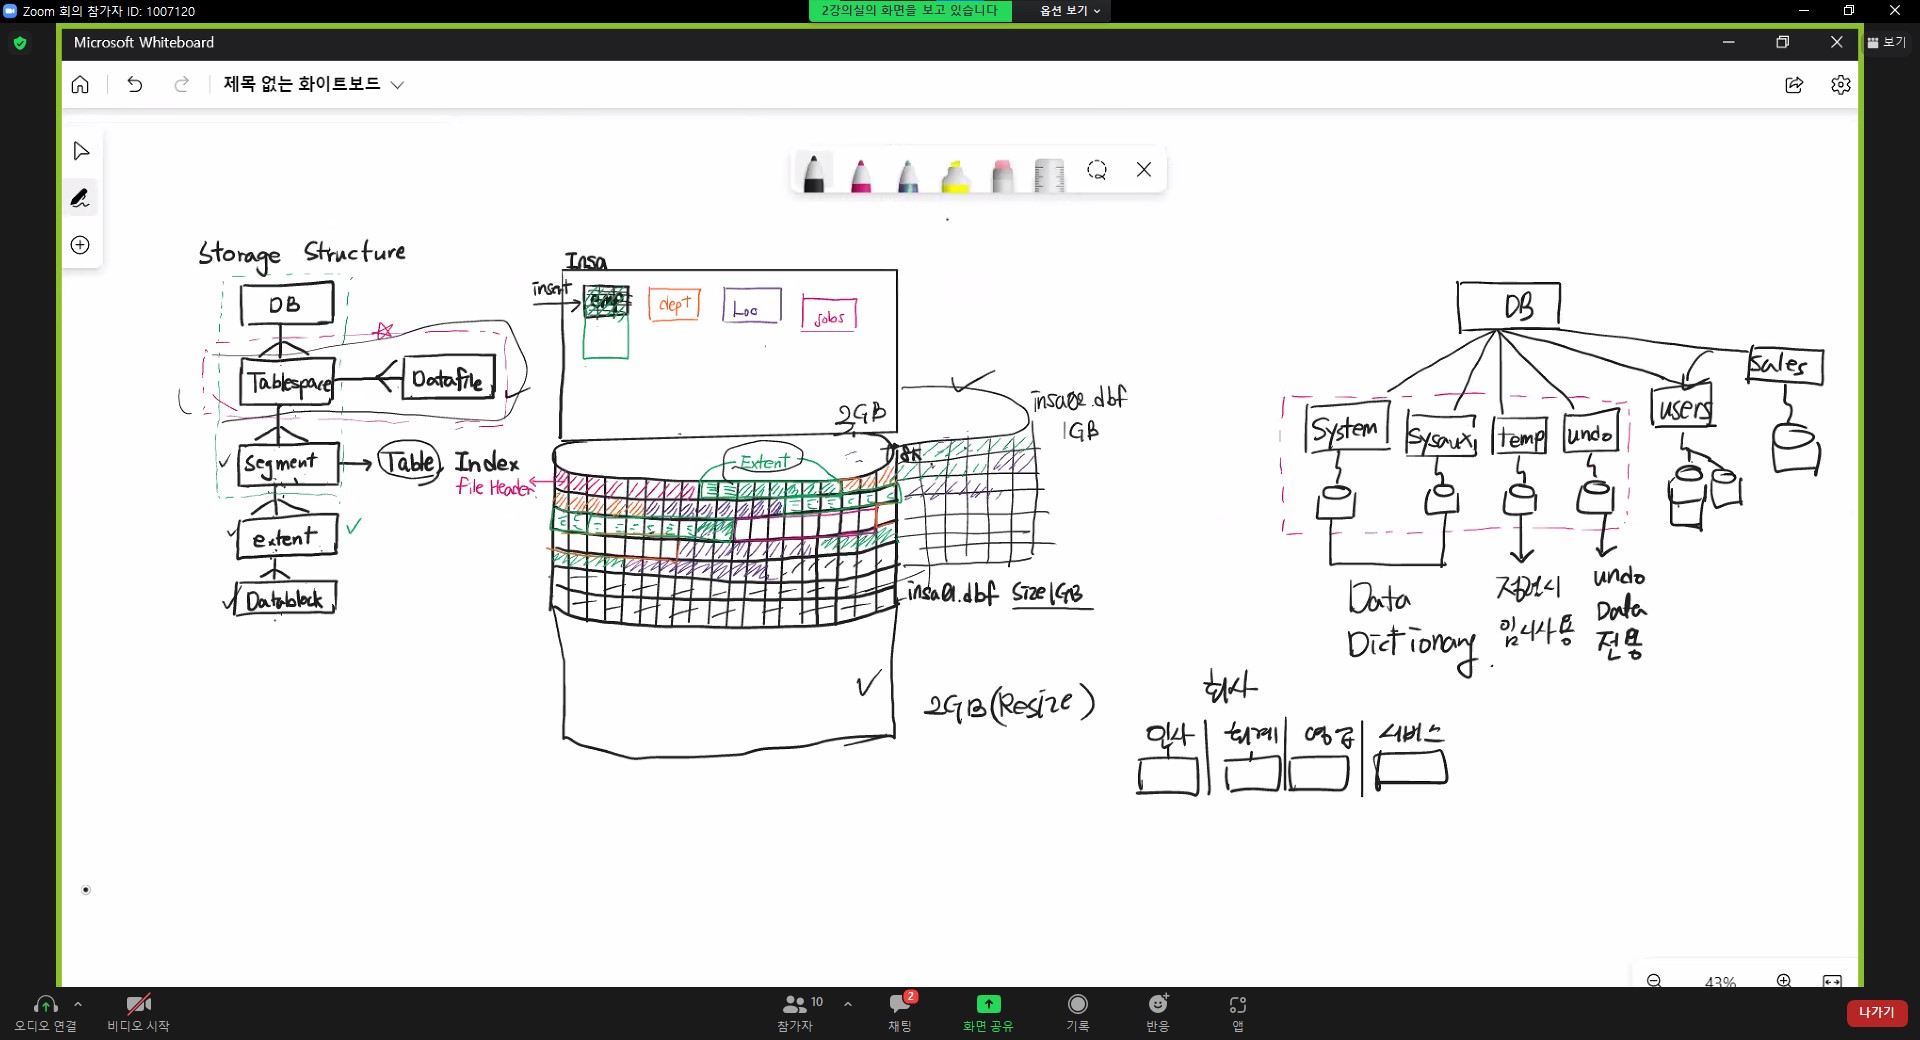 Zoom 회의 참가자 ID: 1007120
2강의실의 화면을 보고 있습니다
옵션 보기
보기
Microsoft Whiteboard
제목 없는 화이트보드
Storage Structure
DB
Tablespace
Datafile
Segment
Table, Index
extent
Datablock
File Header
Insa
insert
emp
dept
Loc
jobs
2GB
Extent
insa02.dbf
1GB
insa01.dbf Size 1GB
2GB (Resize)
DB
System
Sysaux
temp
undo
users
Sales
Data
Dictionary
임시사용
undo
Data
전용
회사
인사
회계
서비스
43%
오디오 연결
비디오 시작
참가자
10
채팅
2
화면 공유
기록
반응
앱
나가기